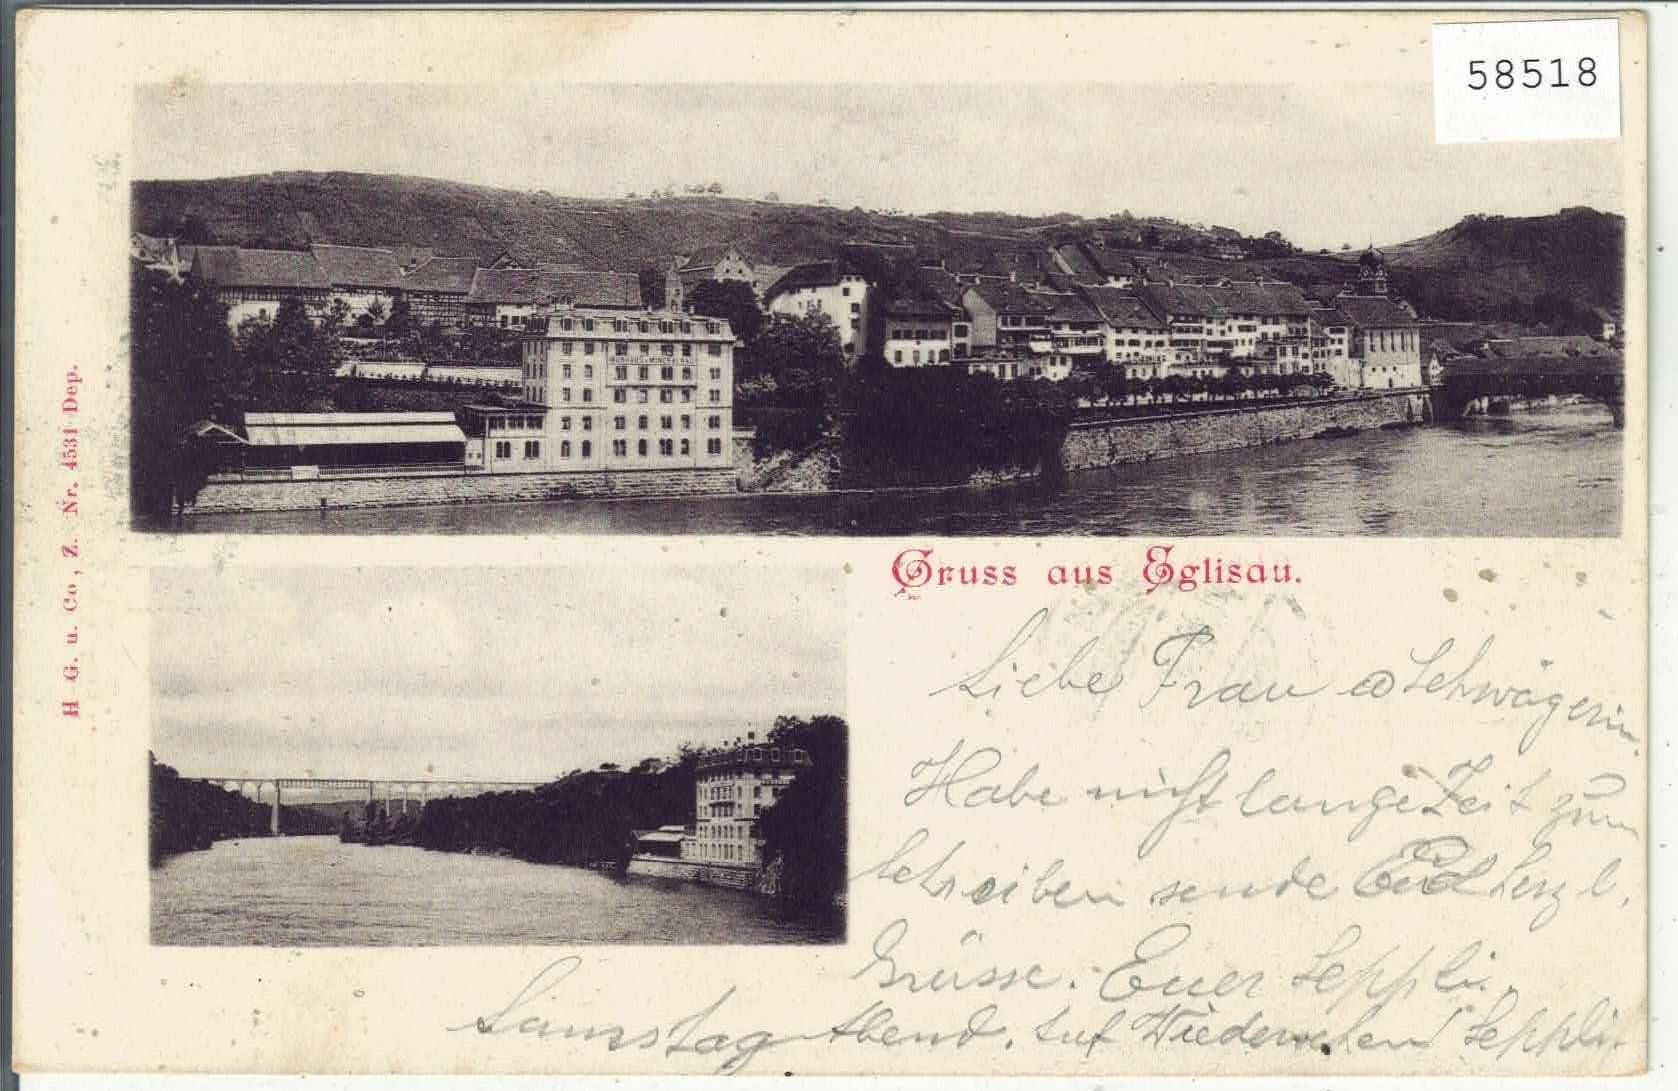 58518
KURHAUS & MINERALBAD
H. G. u. Co, Z. Nr. 4531 Dep.
Gruss aus Eglisau.
Liebe Frau Schwägerin.
Habe nicht lange Zeit zum
schreiben sende Euch herzl.
Grüsse. Euer Seppli.
Samstag Abend. Auf Wiedersehen! Seppli.